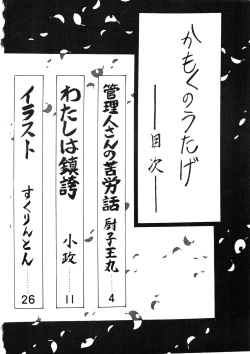 かもくのうたげ
目次
管理人さんの苦労話 厨子王丸……4
わたしは鎮誇 小政……11
イラスト すくりんとん……26